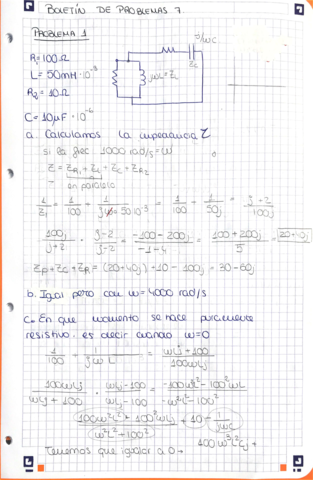 BOLETÍN DE PROBLEMAS 7.
PROBLEMA 1
-j/ωC
Zc
jωL = ZL
R₁ = 100Ω
L = 50mH · 10⁻³
R₂ = 10Ω
C = 10μF · 10⁻⁶
a. Calculamos la impedancia Z
si la frec. 1000 rad/s = ω
Z = ZR1 + ZL + ZC + ZR2
en paralelo
1/Z1 = 1/100 + 1/(jω 50·10⁻³) = 1/100 + 1/50j = (j-2)/100j
100j/(j+2) · (j-2)/(j-2) = (-100-200j)/(-1-4) = (100+200j)/5 = 20+40j
Zp + Zc + ZR = (20+40j) + 10 - 100j = 30-60j
b. Igual pero con ω = 4000 rad/s
c. En que momento se hace puramente
resistivo. es decir cuando ω=0
1/100 + 1/(jωL) = (ωLj+100)/(100ωLj)
100ωLj/(ωLj+100) · (ωLj-100)/(ωLj-100) = (-100ω²L²-100²ωL)/(-ω²L²-100²)
(100ω²L²+100²ωLj)/(ω²L²+100²) + 10 - 1/(jωC)
Tenemos que igualar a 0 →
400ω³L²Cj +